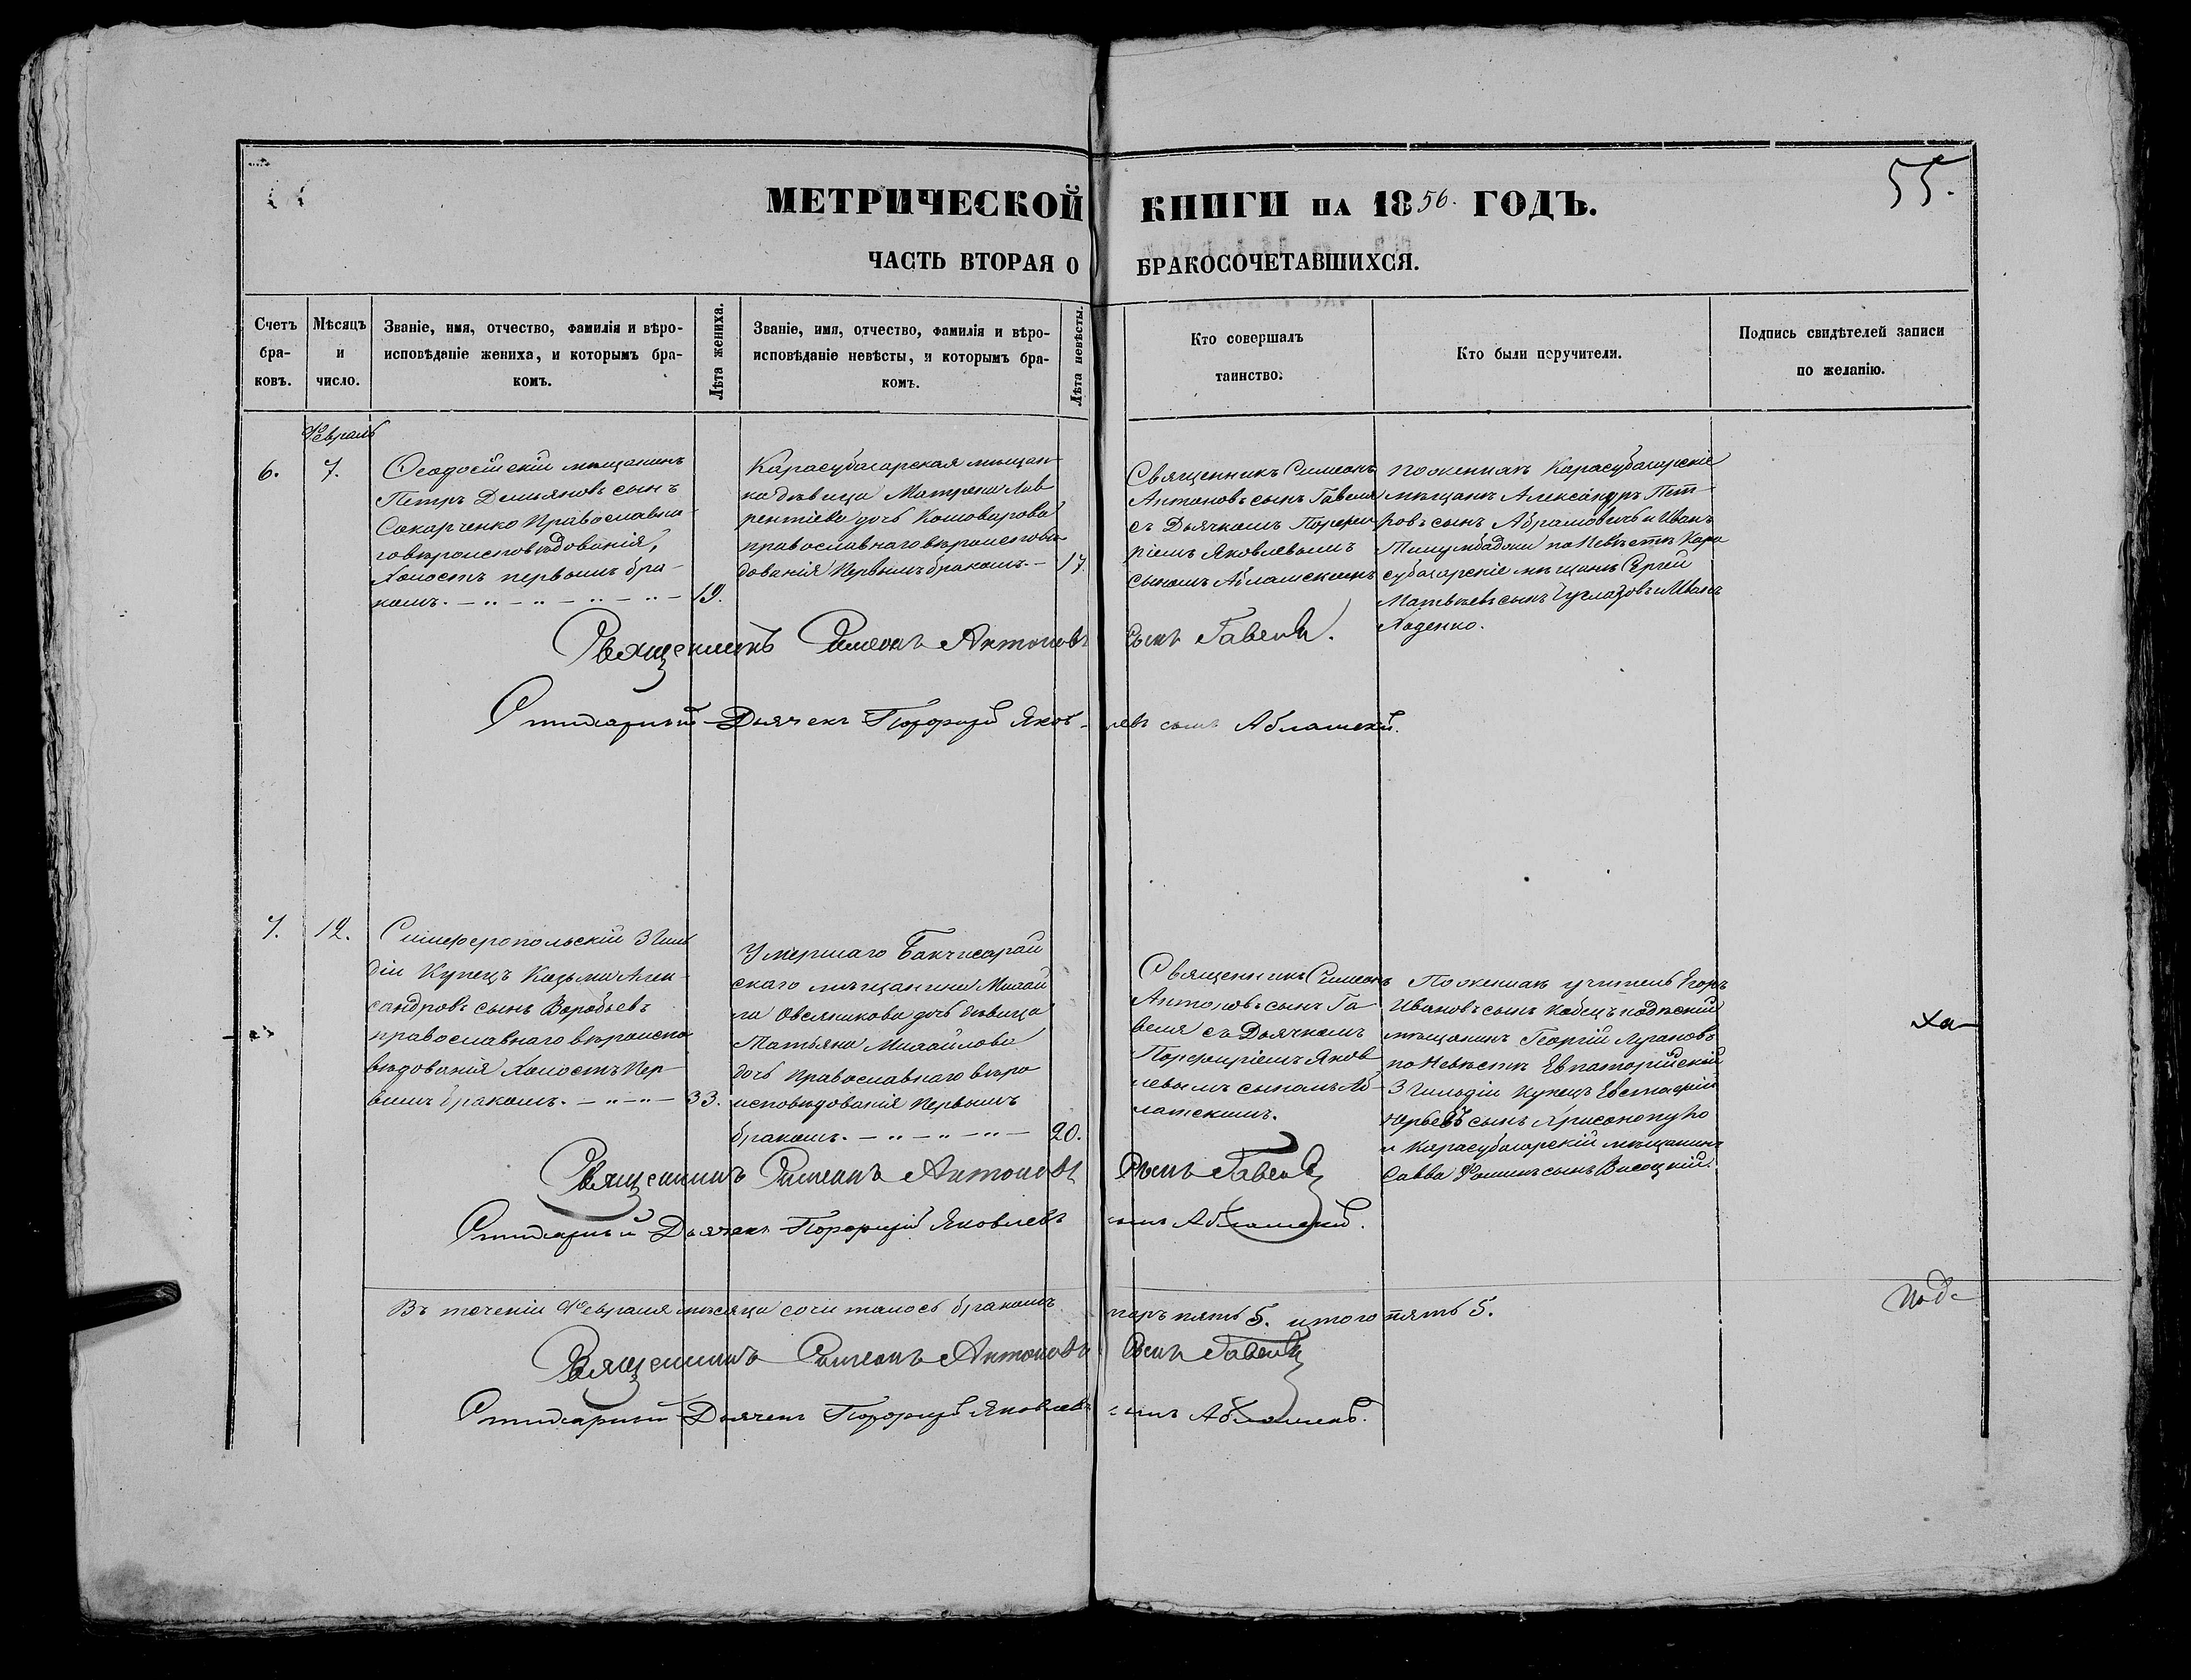 55.
МЕТРИЧЕСКОЙ КНИГИ НА 1856. ГОДЪ.
ЧАСТЬ ВТОРАЯ О БРАКОСОЧЕТАВШИХСЯ.
Счетъ бра- ковъ.
Мѣсяцъ и число.
Званіе, имя, отчество, фамилія и вѣро-
исповѣданіе жениха, и которымъ бра-
комъ.
Лѣта жениха.
Званіе, имя, отчество, фамилія и вѣро-
исповѣданіе невѣсты, и которымъ бра-
комъ.
Лѣта невѣсты.
Кто совершалъ
таинство.
Кто были поручители.
Подпись свидѣтелей записи
по желанію.
Февраль
6.
7.
Ѳеодосійскій мѣщанинъ
Петръ Демьяновъ сынъ
Сокарченко Православна-
го вѣроисповѣдованія,
Холостъ первымъ бра-
комъ.
19.
Карасубазарская мѣщан-
ка дѣвица Матрена Лав
рентіева дочь Кашоварова
православнаго вѣроисповѣ-
дованія Первымъ бракомъ.
17.
Священникъ Симеонъ
Антоновъ сынъ Гавеля
съ Дьячкомъ Порфи
ріемъ Яковлевымъ
сыномъ Аблашскимъ
по женихѣ Карасубазарскіе
мѣщане Александръ Пет-
ровъ сынъ Абрамовичь и Иванъ
по Невѣстѣ Кара
субазарскіе мѣщане Сергей
Матвѣевъ сынъ и Иванъ
Ладенко.
Священникъ Симеонъ Антоновъ Сынъ Гавеля.
Дьячекъ Порфирій Яков-левъ сынъ Аблашскій.
7.
12.
Симферопольскій 3 Гиль
діи Купецъ Козьма Алек-
сандровъ сынъ Воробьевъ
православнаго вѣроиспо
вѣдованія Холостъ Пер-
вымъ бракомъ.
33.
Умершаго Бакчисарай
скаго мѣщанина Михай
ла Овсяникова дочь дѣвица
Татьяна Михайлова
дочь Православнаго вѣро
исповѣдованія Первымъ
бракомъ.
20.
Священникъ Симеонъ
Антоновъ сынъ Га
веля съ Дьячкомъ
Порфиріемъ Яков
левымъ сыномъ Аб-
лашскимъ.
По женихѣ учитель Егоръ
Ивановъ сынъ
мѣщанинъ Георгій
по Невѣстѣ Евпаторійскій
3 Гильдіи Купецъ Евстафій
Юрьевъ сынъ Хрисокопуло
и Карасубазарскій мѣщанинъ
Савва Фоминъ сынъ Висоцкій.
ха
Священникъ Симеонъ Антоновъ Сынъ Гавеля
Дьячекъ Порфирій Яковлевъ сынъ Аблашскій.
Въ теченіи Февраля мѣсяца сочиталось бракомъ паръ пять 5. итого пять 5.
Священникъ Симеонъ Антоновъ Сынъ Гавеля
Дьячекъ Порфирій Яковлевъ сынъ Аблашскій.